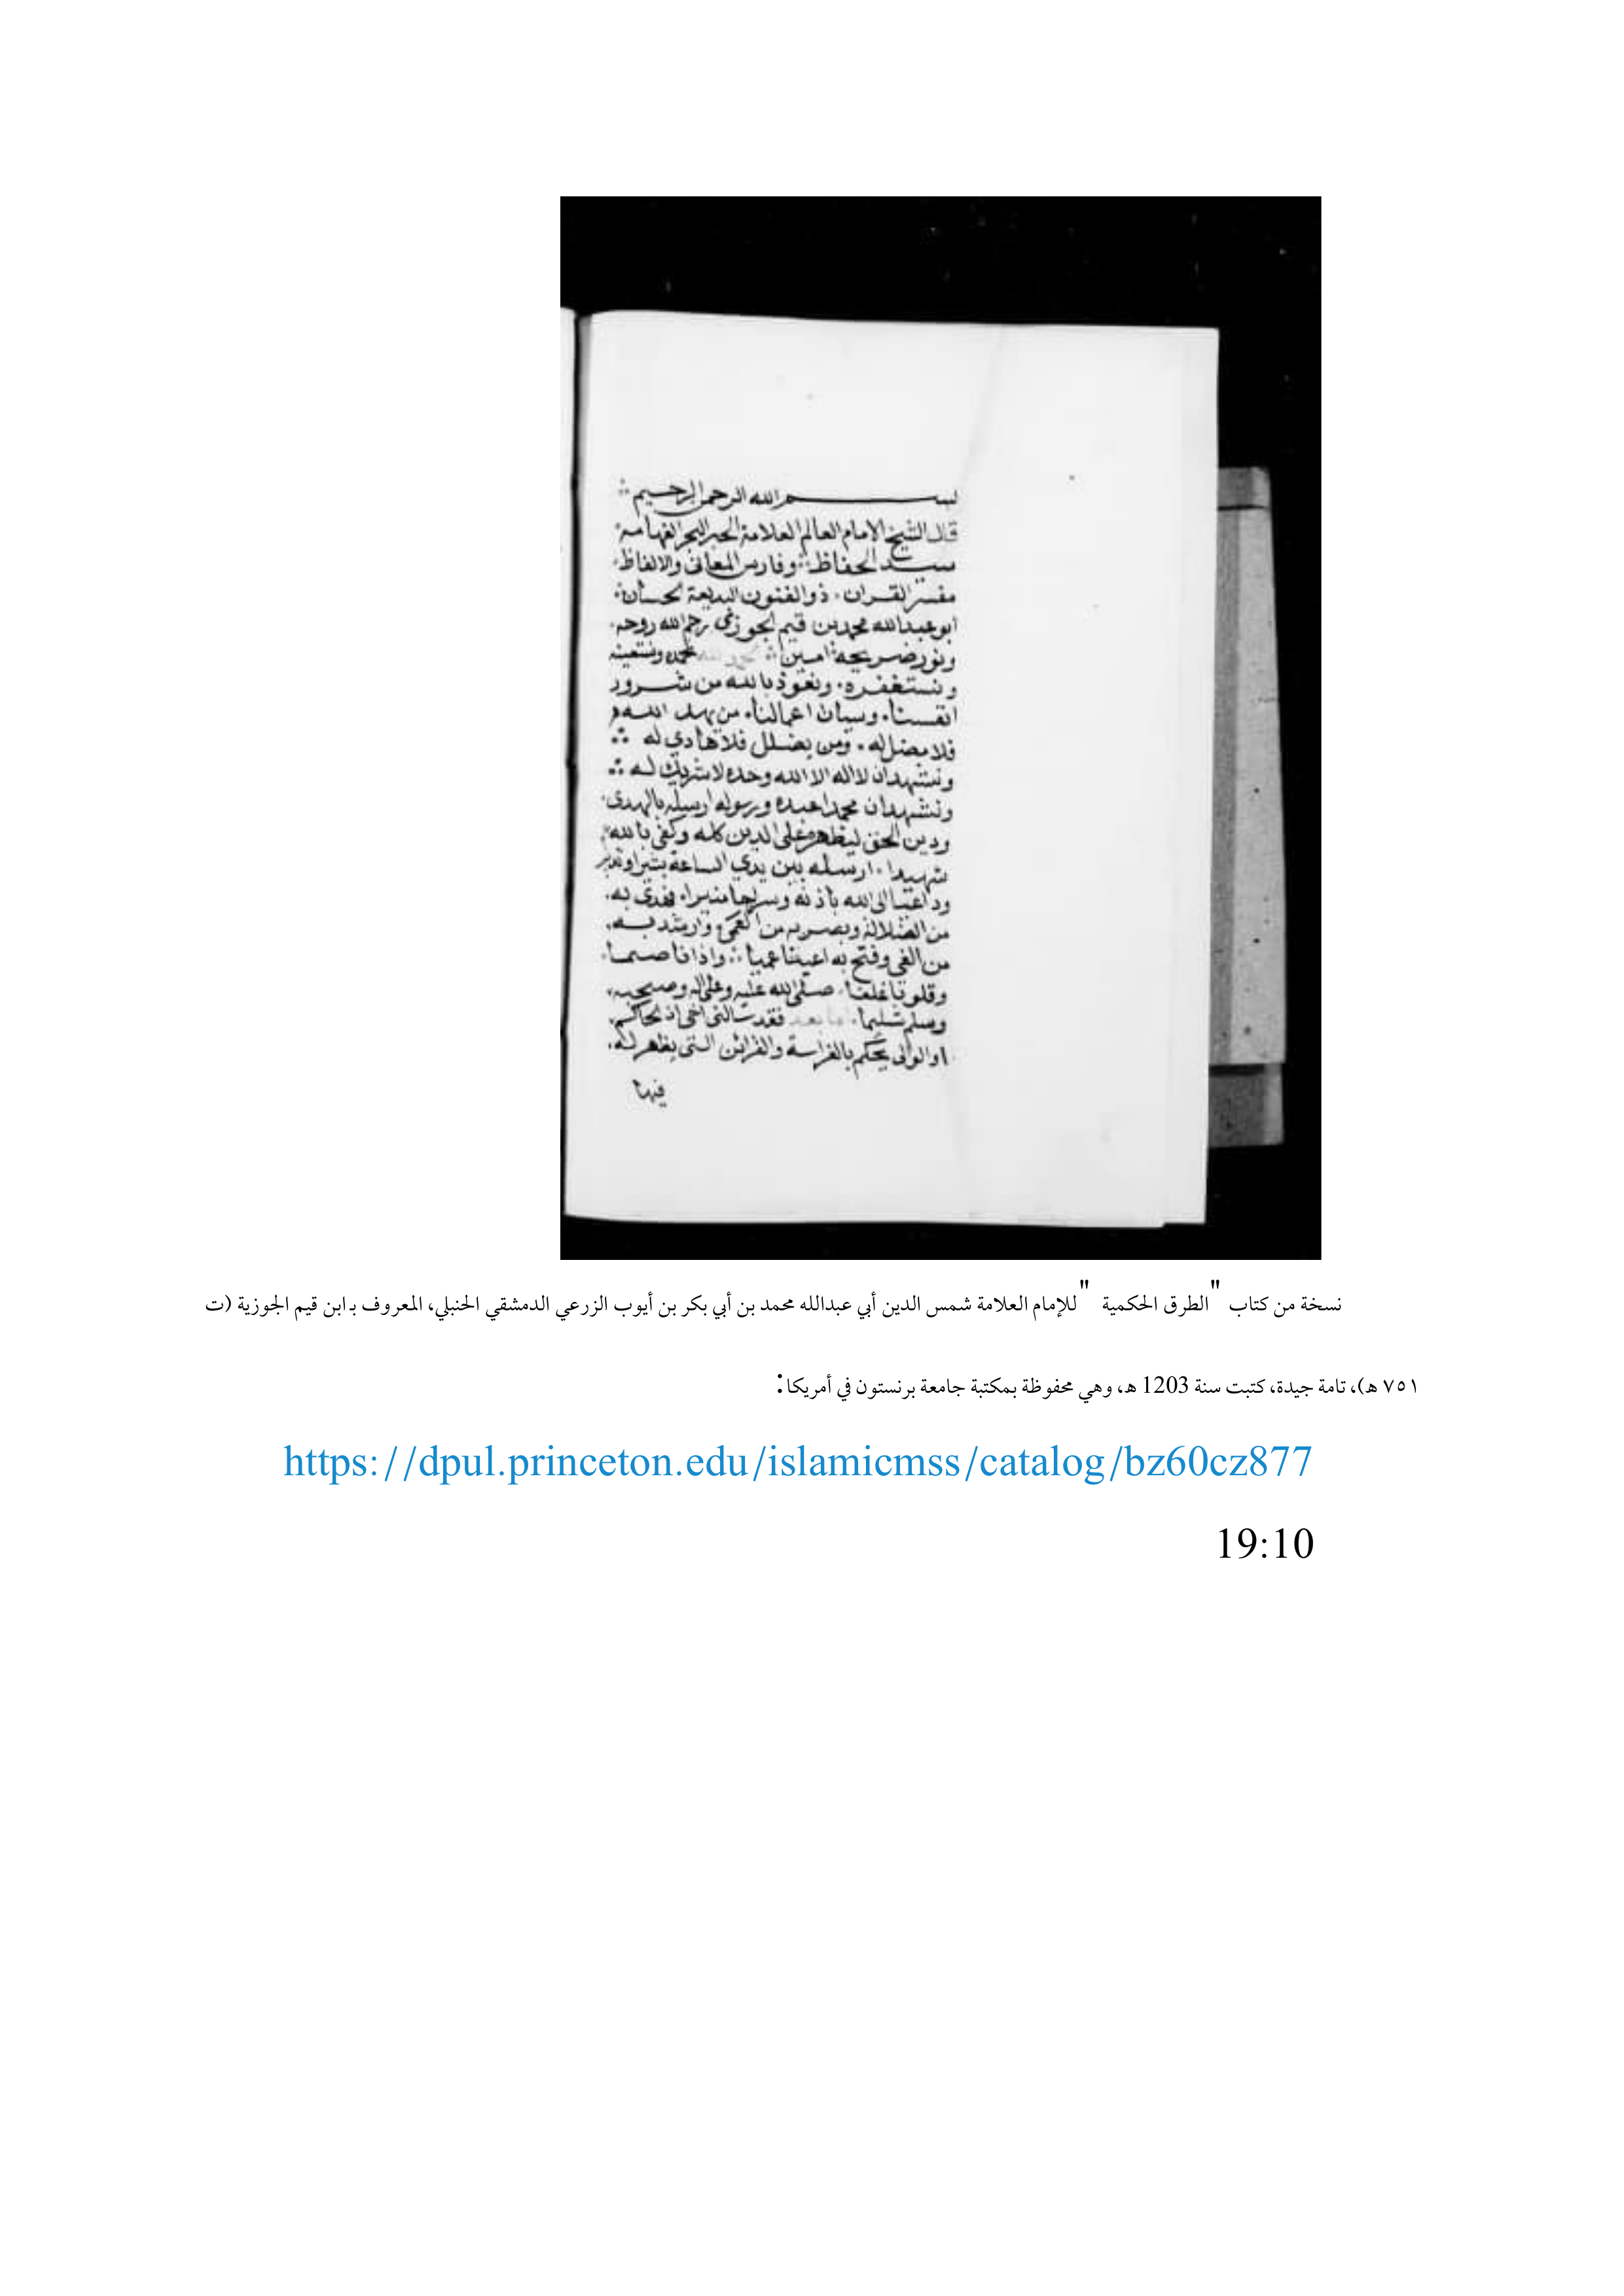 بســـــــم الله الرحمن الرحيم
قال الشيخ الامام العالم العلامة الحبر البحر الفهامة
سيد الحفاظ وفارس المعاني والالفاظ
مفسر القران ذو الفنون البديعة الحسان
ابو عبد الله محمد بن قيم الجوزي رحم الله روحه
ونور ضريحه امين الحمد لله نحمده ونستعينه
ونستغفره ونعوذ بالله من شرور
انفسنا وسيات اعمالنا من يهد الله
فلا مضل له ومن يضلل فلا هادي له
ونشهد ان لا اله الا الله وحده لا شريك له
ونشهد ان محمدا عبده ورسوله ارسله بالهدى
ودين الحق ليظهره على الدين كله وكفى بالله
شهيدا ارسله بين يدي الساعة بشيرا ونذير
وداعيا الى الله باذنه وسراجا منيرا فهدى به
من الضلالة وبصر به من العمى وارشد به
من الغي وفتح به اعينا عميا واذانا صما
وقلوبا غلفا صلى الله عليه وعلى اله وصحبه
وسلم تسليما اما بعد فقد سالني اخي
او الوالي يحكم بالفراسة والقرائن التي يظهر له
فيها
نسخة من كتاب "الطرق الحكمية " للإمام العلامة شمس الدين أبي عبدالله محمد بن أبي بكر بن أيوب الزرعي الدمشقي الحنبلي، المعروف بـ ابن قيم الجوزية (ت
٧٥١ هـ)، تامة جيدة، كتبت سنة 1203 هـ، وهي محفوظة بمكتبة جامعة برنستون في أمريكا:
https://dpul.princeton.edu/islamicmss/catalog/bz60cz877
19:10